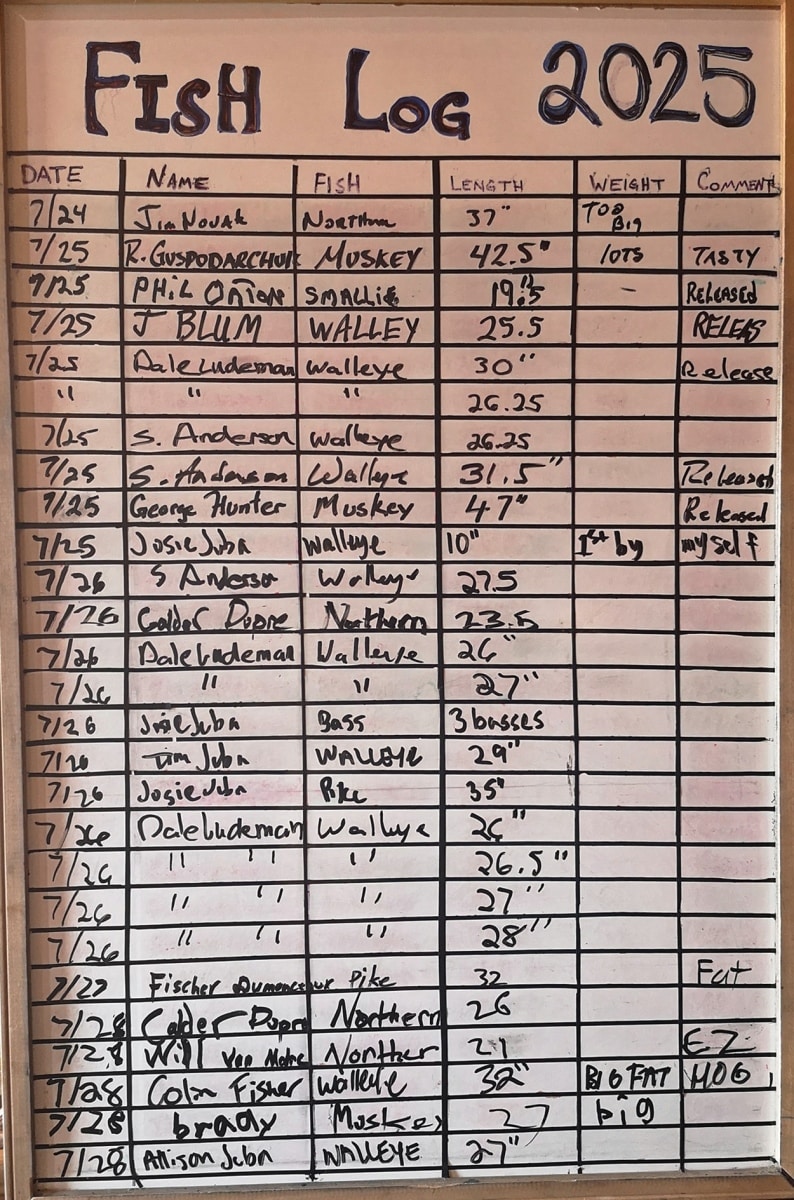 FISH LOG 2025
DATE NAME FISH LENGTH WEIGHT COMMENTS
7/24 Jim Novak Northern 37" TOO BIG
7/25 R. GUSPODARCHUK MUSKEY 42.5" lOTS TASTY
7/25 PHiL SMALLIE 19.5" - RELEASED
7/25 J BLUM WALLEY 25.5 RELEAS
7/25 Dale Ludeman Walleye 30" Release
" " " 26.25
7/25 S. Anderson Walleye 26.25
7/25 S. Anderson Walleye 31.5" Released
7/25 George Hunter Muskey 47" Released
7/25 Josie Juba Walleye 10" 1st by my self
7/26 S Anderson Walleye 27.5
7/26 Calder Dupre Northern 23.5
7/26 Dale Ludeman Walleye 26"
7/26 " " 27"
7/26 Josie Juba Bass 3 basses
7/26 Tim Juba WALLEYE 29"
7/26 Josie Juba Pike 35"
7/26 Dale Ludeman Walleye 26"
7/26 " " " 26.5"
7/26 " " " 27"
7/26 " " " 28"
7/27 Fischer Pike 32 Fat
7/28 Calder Dupre Northern 26
7/28 Will Van Norther 21 EZ
7/28 Colin Fisher Walleye 32" BIG FAT HOG
7/28 brady Muskey 27 big
7/28 Allison Juba WALLEYE 27"